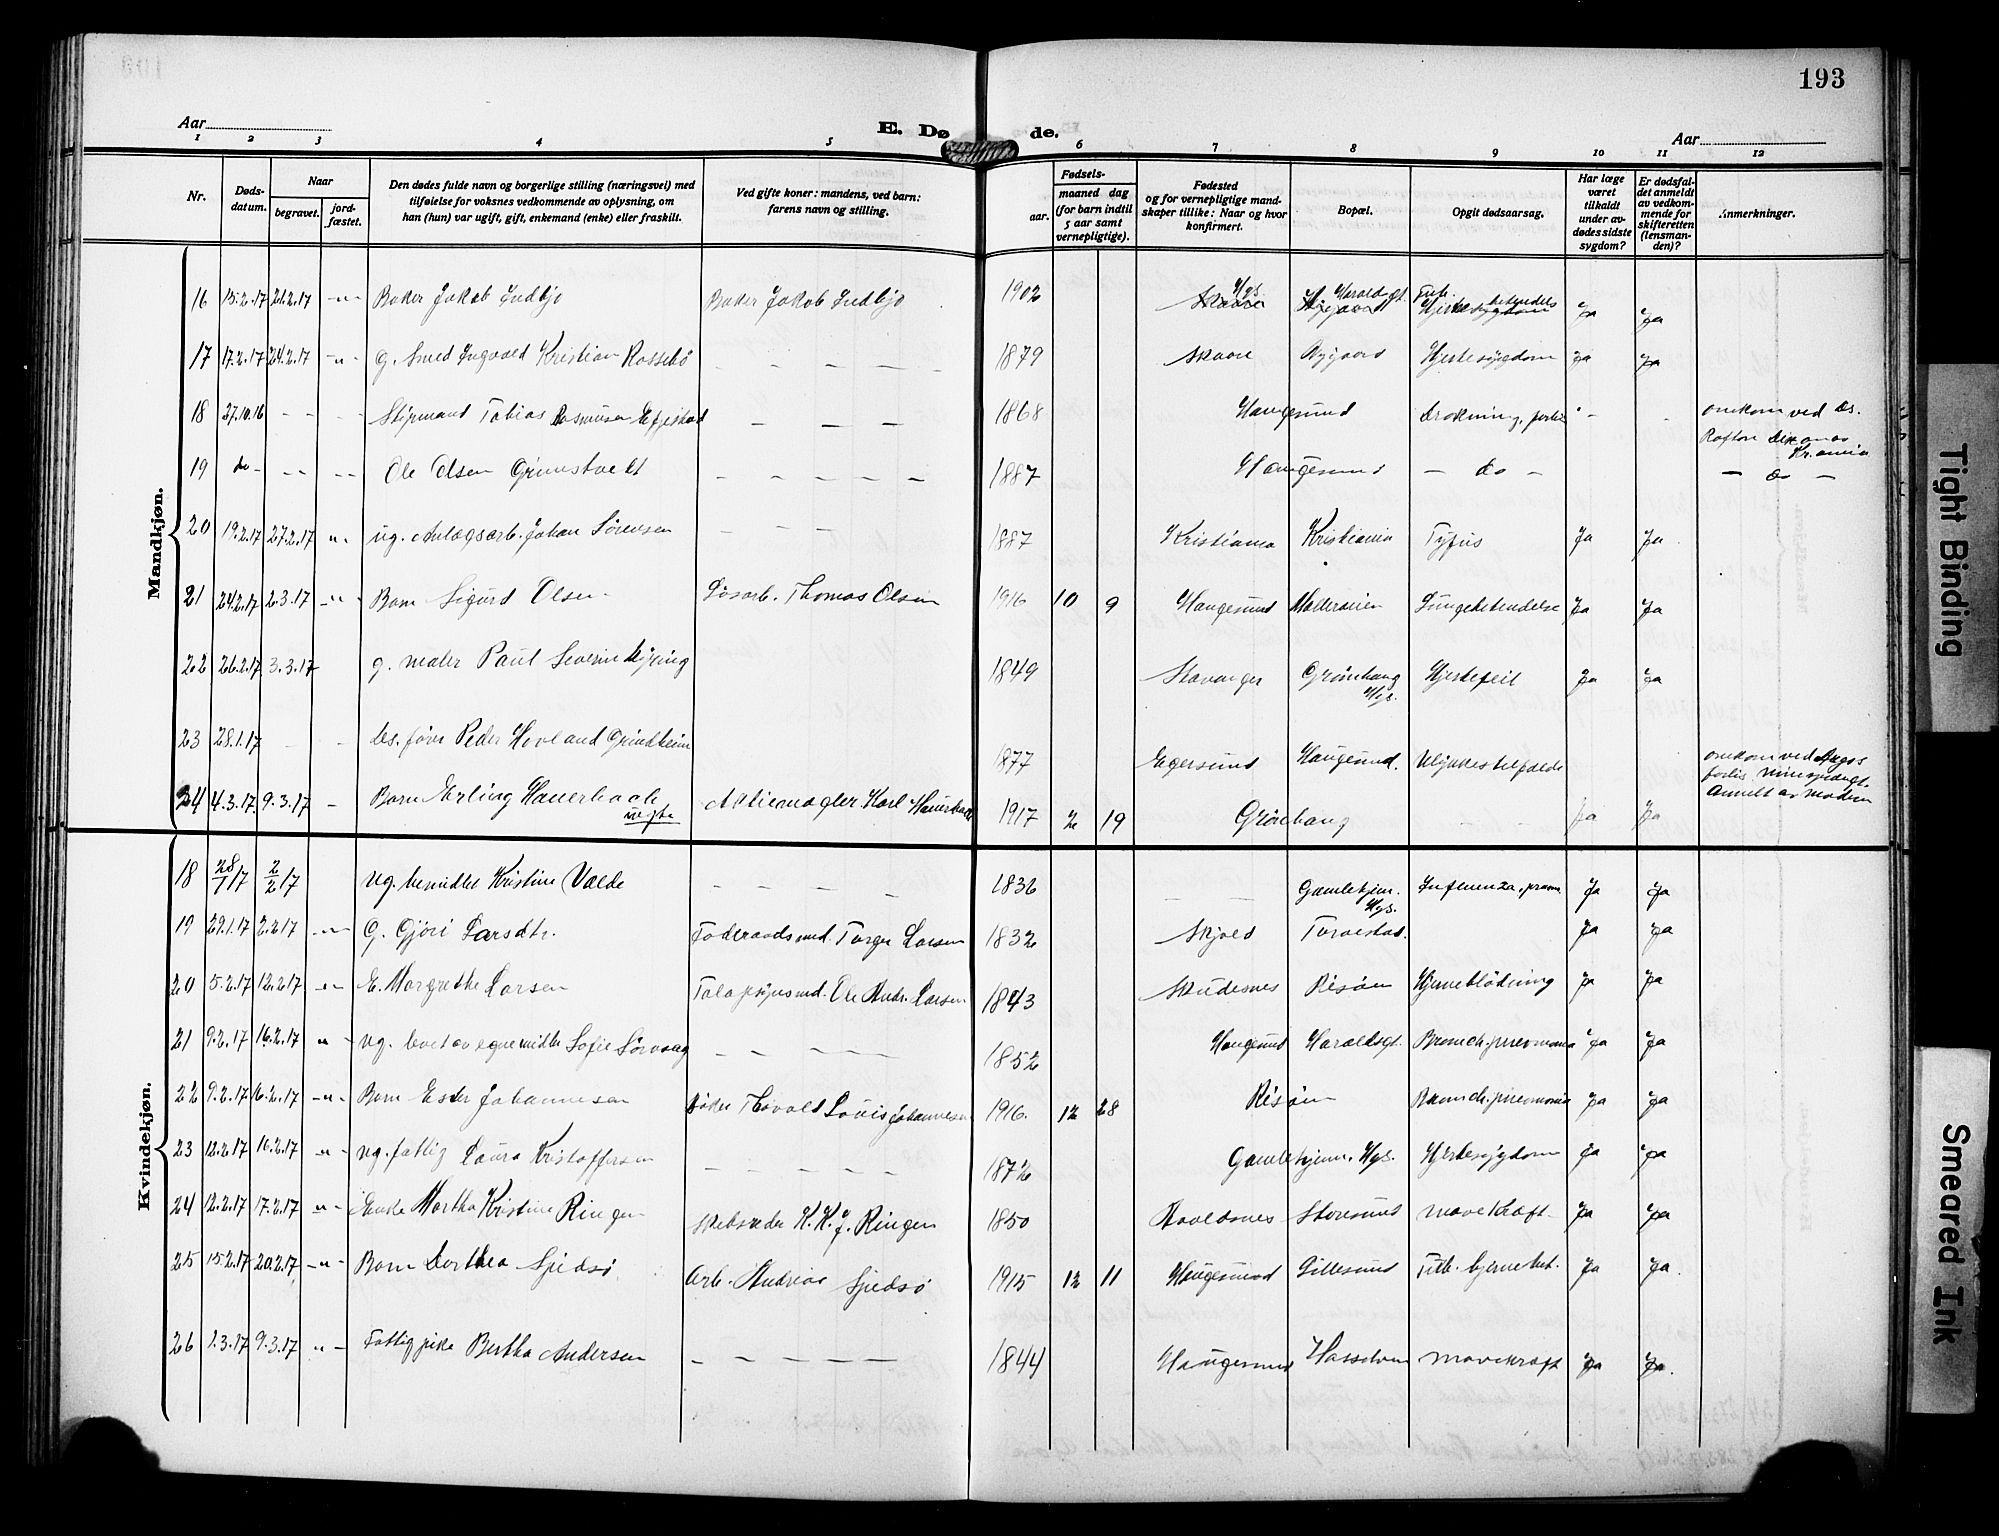 193
Aar
E. Dø de.
Aar
1 2 3 4 5 6 7 8 9 10 11 12
Nr.
Døds-
datum.
Naar
begravet.
jord-
fæstet.
Den dødes fulde navn og borgerlige stilling (næringsvei) med
tilføielse for voksnes vedkommende av oplysning, om
han (hun) var ugift, gift, enkemand (enke) eller fraskilt.
Ved gifte koner: mandens, ved barn:
farens navn og stilling.
Fødsels-
aar.
maaned dag
(for barn indtil
5 aar samt
vernepligtige).
Fødested
og for vernepligtige mand-
skaper tillike: Naar og hvor
konfirmert.
Bopæl.
Opgit dødsaarsag.
Har læge
været
tilkaldt
under av-
dødes sidste
sygdom?
Er dødsfal-
det anmeldt
av vedkom-
mende for
skifteretten
(lensman-
den)?
Anmerkninger.
Mandkjøn.
16 15.2.17 21.2.17 -"- Baker Jakob Indbjo Baker Jakob Indbjo 1902 Hgs. Haraldsgt. Tub. Ja Ja
17 17.2.17 24.2.17 -"- g. Smed Ingvald Kristian Rossebø - - - - - 1879 Skaare Rygjaard Hjertesygdom Ja Ja
18 27.10.16 - - - Styrmand Tobias Rasmusen - - - - 1868 Haugesund Drukning, forlis - - omkom ved Ds.
Kr.ania
19 do - - - - - Ole Olsen Grimstvedt - - - - - 1887 Haugesund - do - - do -
20 19.2.17 27.2.17 -"- ug. Anlægsarb. Johan Sørensen - - - 1887 Kristiania Kristiania Tyfus Ja Ja
21 24.2.17 2.3.17 -"- Barn Sigurd Olsen Løsarb. Thomas Olsen 1916 10 9 Haugesund Møllerveien Lungebetendelse Ja Ja
22 26.2.17 3.3.17 g. maler Paul Severin 1849 Stavanger Grønhaug
Hgs. Hjertefeil Ja Ja
23 28.1.17 - - Ds. fører Peder Hovland Grindheim 1877 Egersund Haugesund. Ulykkestilfælde omkom ved
forlis minesprængt.
Anmelt av moderen
24 4.3.17 9.3.17 - Barn Erling Hauerbach
Aktiemægler Karl Hauerbach 1917 2 19 Grønhaug - - Ja Ja
Kvindekjøn.
18 28/1 17 2/2 17 ug. bemidlet Kristine Valde - - - - - 1836 - - Gamlehjem.
Hgs. Influenza, pneum. Ja Ja
19 29.1.17 2.2.17 -"- G. Gjöri Larsdtr. Føderaadsmd. Torger Larsen 1832 Skjold Torvestad. Ja Ja
20 5.2.17 12.2.17 -"- E. Margrethe Larsen Ole Andr. Larsen 1843 Skudesnes Risøen Hjerneblødning Ja Ja
21 9.2.17 16.2.17 " - ug. levet av egne midler Sofie Sørvaag - - - - - 1852 Haugesund Haraldsgt. Bronch. pneumonia Ja Ja
22 9.2.17 16.2.17 -"- Barn Ester Johannesen Bøder Thorvald Louis Johannesen 1916. 12 28 Risøen Bronch. pneumonia Ja Ja
23 12.2.17 16.2.17 " - ug. fattig Laura Kristoffersen - - - - - 1872 Gamlehjem. Hgs. Hjertesygdom Ja Ja
24 12.2.17 17.2.17 " - Enke Martha Kristine Ringen Skibsreder K. K. J. Ringen 1850 Avaldsnes Storesund mavekræft - Ja Ja
25 15.2.17 20.2.17 -"- Barn Dorthea Spjedsø Arb. Andreas Spjedsø 1915 12 11 Haugesund Lillesund Tub. hjernebet. Ja Ja.
26 1.3.17 9.3.17 " - Fattig pike Bertha Andersen - - - - - 1844 Haugesund Hasselveien mavekræft Ja Ja.
Tight Binding
Smeared Ink